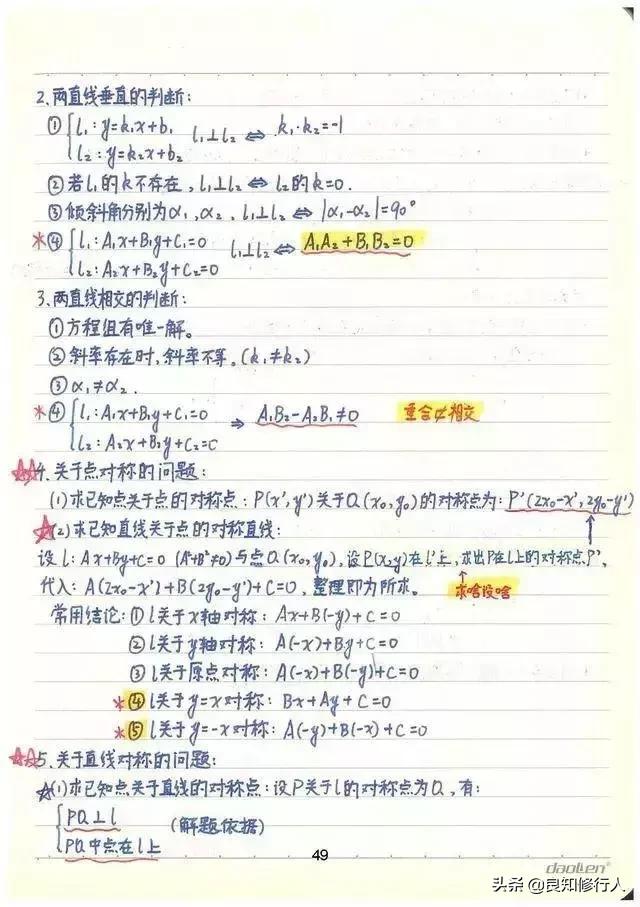 2.两直线垂直的判断:
① { l₁: y=k₁x+b₁ l₁⊥l₂ ⇔ k₁·k₂=-1
l₂: y=k₂x+b₂
②若l₁的k不存在, l₁⊥l₂ ⇔ l₂的k=0.
③倾斜角分别为α₁,α₂, l₁⊥l₂ ⇔ |α₁-α₂|=90°
*④ { l₁: A₁x+B₁y+C₁=0 l₁⊥l₂ ⇔ A₁A₂+B₁B₂=0
l₂: A₂x+B₂y+C₂=0
3.两直线相交的判断:
①方程组有唯一解。
②斜率存在时,斜率不等。(k₁≠k₂)
③α₁≠α₂.
*④ { l₁: A₁x+B₁y+C₁=0 ⇒ A₁B₂-A₂B₁≠0 重合⊄相交
l₂: A₂x+B₂y+C₂=0
☆☆4.关于点对称的问题:
(1)求已知点关于点的对称点: P(x',y')关于Q(x₀,y₀)的对称点为: P'(2x₀-x',2y₀-y')
☆(2)求已知直线关于点的对称直线:
设l: Ax+By+C=0 (A²+B²≠0)与点Q(x₀,y₀),设P(x,y)在l'上,求出P在l上的对称点P',
代入: A(2x₀-x')+B(2y₀-y')+C=0, 整理即为所求。 ↑求啥设啥
常用结论:①l关于x轴对称: Ax+B(-y)+C=0
②l关于y轴对称: A(-x)+By+C=0
③l关于原点对称: A(-x)+B(-y)+C=0
*④l关于y=x对称: Bx+Ay+C=0
*⑤l关于y=-x对称: A(-y)+B(-x)+C=0
☆☆5.关于直线对称的问题:
☆(1)求已知点关于直线的对称点:设P关于l的对称点为Q,有:
{ PQ⊥l (解题依据)
PQ中点在l上
49
daolien
头条 @良知修行人